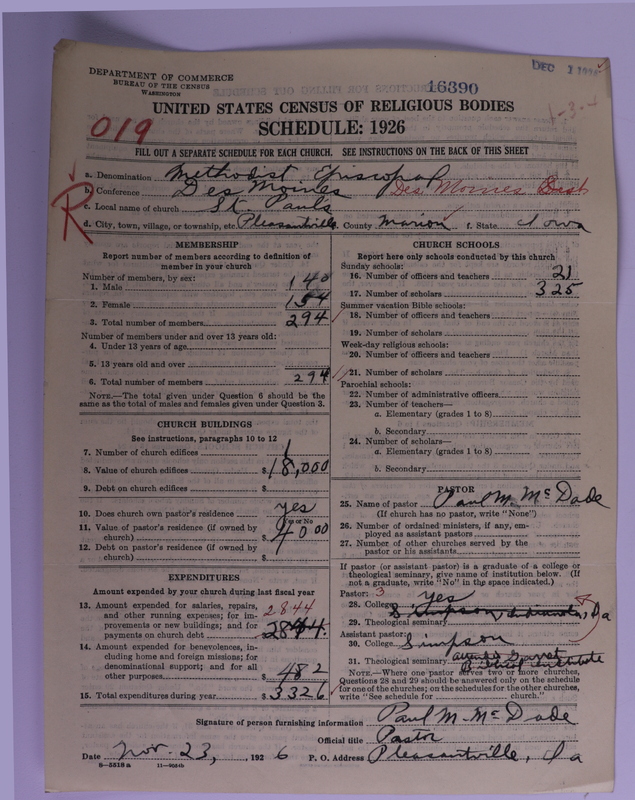 DEPARTMENT OF COMMERCE
BUREAU OF THE CENSUS
WASHINGTON
16390
DEC 1 1926
UNITED STATES CENSUS OF RELIGIOUS BODIES
019
SCHEDULE: 1926
FILL OUT A SEPARATE SCHEDULE FOR EACH CHURCH. SEE INSTRUCTIONS ON THE BACK OF THIS SHEET
a. Denomination Methodist Episcopal
b. Conference Des Moines Des Moines Dist
R
c. Local name of church St. Pauls
d. City, town, village, or township, etc. Pleasantville e. County Marion f. State Iowa
MEMBERSHIP
Report number of members according to definition of
member in your church
Number of members, by sex:
1. Male 140
2. Female 154
3. Total number of members 294
Number of members under and over 13 years old:
4. Under 13 years of age
5. 13 years old and over
6. Total number of members 294
NOTE.—The total given under Question 6 should be the
same as the total of males and females given under Question 3.
CHURCH BUILDINGS
See instructions, paragraphs 10 to 12
7. Number of church edifices 1
8. Value of church edifices $18,000
9. Debt on church edifices $
10. Does church own pastor's residence yes
Yes or No
11. Value of pastor's residence (if owned by
church) $4000
12. Debt on pastor's residence (if owned by
church) $
EXPENDITURES
Amount expended by your church during last fiscal year
13. Amount expended for salaries, repairs,
and other running expenses; for im-
provements or new buildings; and for
payments on church debt 2844
$2844.
14. Amount expended for benevolences, in-
cluding home and foreign missions; for
denominational support; and for all
other purposes $482
15. Total expenditures during year $3326
CHURCH SCHOOLS
Report here only schools conducted by this church
Sunday schools:
16. Number of officers and teachers 21
17. Number of scholars 325
Summer vacation Bible schools:
18. Number of officers and teachers
19. Number of scholars
Week-day religious schools:
20. Number of officers and teachers
21. Number of scholars
Parochial schools:
22. Number of administrative officers
23. Number of teachers—
a. Elementary (grades 1 to 8)
b. Secondary
24. Number of scholars—
a. Elementary (grades 1 to 8)
b. Secondary
PASTOR
25. Name of pastor Paul M. McDade
(If church has no pastor, write "None")
26. Number of ordained ministers, if any, em-
ployed as assistant pastors
27. Number of other churches served by the
pastor or his assistants
If pastor (or assistant pastor) is a graduate of a college or
theological seminary, give name of institution below. (If
not a graduate, write "No" in the space indicated.)
Pastor: 3
28. College yes
Simpson, Indianola, Ia
29. Theological seminary
Assistant pastor:
30. College Simpson
31. Theological seminary Garret
Institute
NOTE.—Where one pastor serves two or more churches,
Questions 28 and 29 should be answered only on the schedule
for one of the churches; on the schedules for the other churches,
write "See schedule for church."
Signature of person furnishing information Paul M. McDade
Official title Pastor
Date Nov. 23, 1926 P. O. Address Pleasantville, Ia
8—5518a 11—9054b